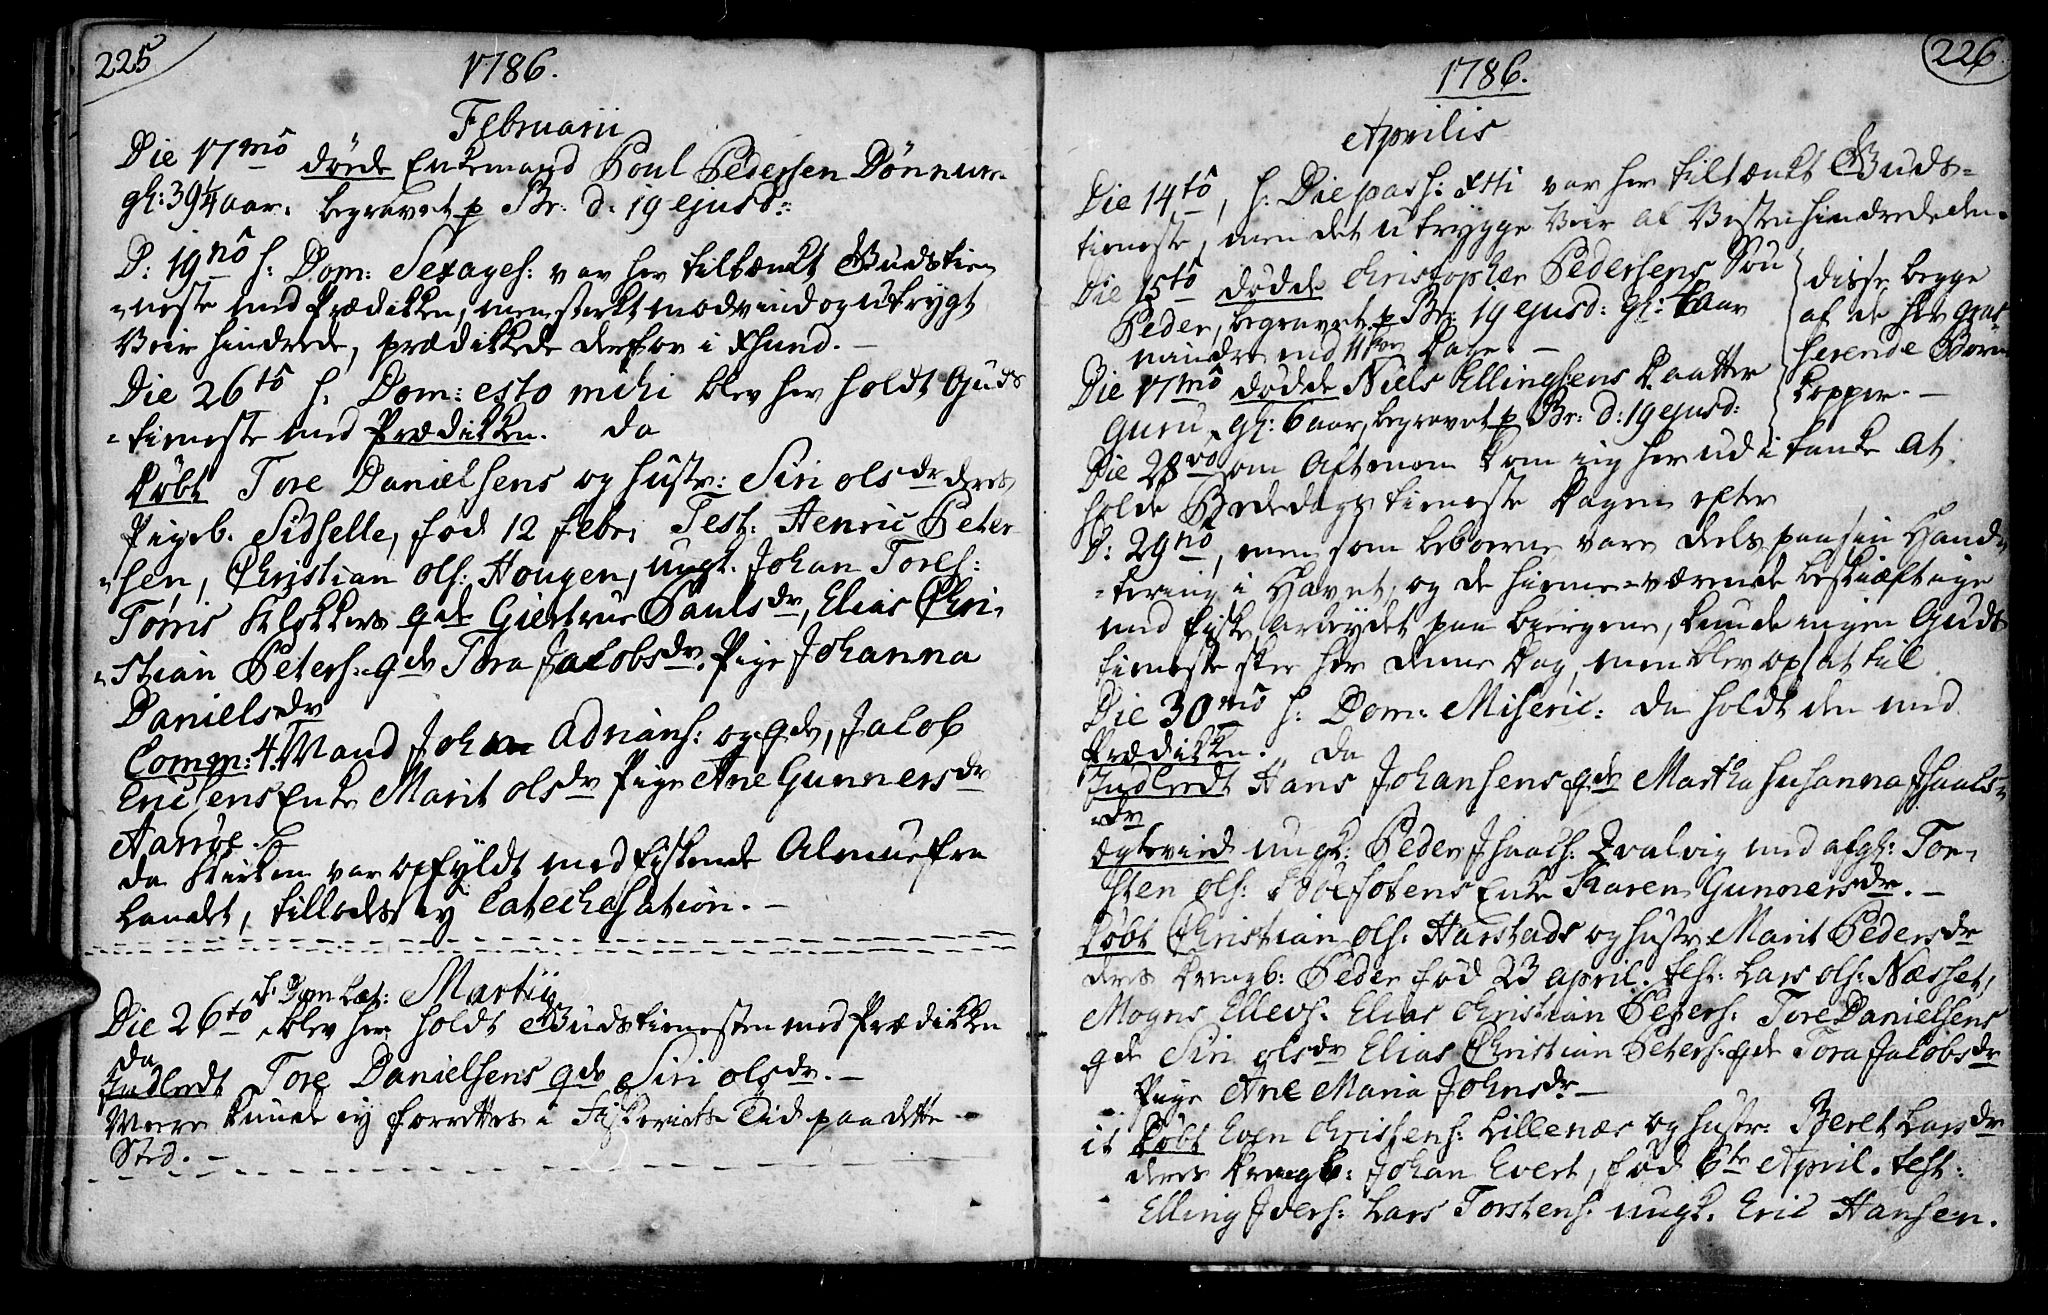 225
1786.
Februarii
Die 17mo døde Enkemand Poul Pedersen Dønnum
gl: 39¼ aar. begravet p Br. d: 19 ejusd:
D: 19no h: Dom: Sexages: var her tiltænkt Gudstien
neste med Prædiken, men sterk modvind og utrygt
Veir hindrede, prædikede derfor i Xsund.
Die 26to h. Dom: esto mihi blev her holdt Guds
tieneste med Prædikken. da
Døbt Tore Danielsens og hustr: Siri olsdr deres
Pigeb. Sidselle, fød 12 febr: Test: Henric Peter
sen, Christian ols: Hougen, ungk. Johan Tores:
Tørris Klokkers qde Giertrue Paulsdr, Elias Chri
stian Peters: qde Tora Jacobsdr. Pige Johanna
Danielsdr
Comm: 4. Mand Johan Adrians: og qde, Jacob
Ericsens Enke Marit olsdr Pige Ane Gunnersdr
Aarröe.
da Kirken var opfyldt med fiskende Almue fra
Landet, tillodes ey Catechesation.
Martii
h. Dom Læt:
Die 26to blev her holdt Gudstienesten med Prædikken
da
Indledt Tore Danielsens qde Siri olsdr.
Meere kunde ey forrettes i Fiskeriets Tid paa dette
Sted.
226
1786.
Aprilis
Die 14to, h: Die pash: Xsti var her tiltænkt Guds
tieneste, men det utrygge Veir af Vesten hindrede den.
Die 15to døde Christopher Pedersens Søn
Peder, begravet p Br: 19 ejusd: gl: 1 aar
mindre end 11 dage.
Die 17mo døde Niels Ellingsens Daatter
Guru, gl: 6 aar, begravet p Br: d: 19 ejusd:
disse begge
af de her gras
serende Børne
kopper.
Die 28vo om Aftenen kom jeg her ud i tanke at
holde Bededags tieneste Dagen efter
D: 29no, men som beboerne vare deels paa sin Hand
tering i Havet, og de hieme-værende beskiæftige
med fiske Arbeydet paa biergene, kunde ingen Guds
tieneste skee her denne Dag, men blev opsat til
Die 30mo h: Dom: Miseric: da holdt den med
Prædikken. da
Indledt Hans Johansens qde Martha Susanna Isaacs
dr
Ægteviid ungk: Peder Isaachs: Qvalvig med afg: Tor
sten ols: Enke Karen Gunnersdr.
Døbt Christian ols: Harstads og hustr Marit Pedersdr
deres drengb: Peder fød 23 april. test: Lars ols: Næsset,
Mogns Ellevs: Elias Christian Peters: Tore Danielsens
qde Siri olsdr Elias Christian Peters: qde Tora Jacobsdr
Pige Ane Maria Johnsdr
it Døbt Even Christens: Lillenæs og hustr: Beret Larsdr
deres drengb: Johan Evert, fød 6te April. test:
Elling Iders: Lars Torstens: ungk. Eric Hansen.